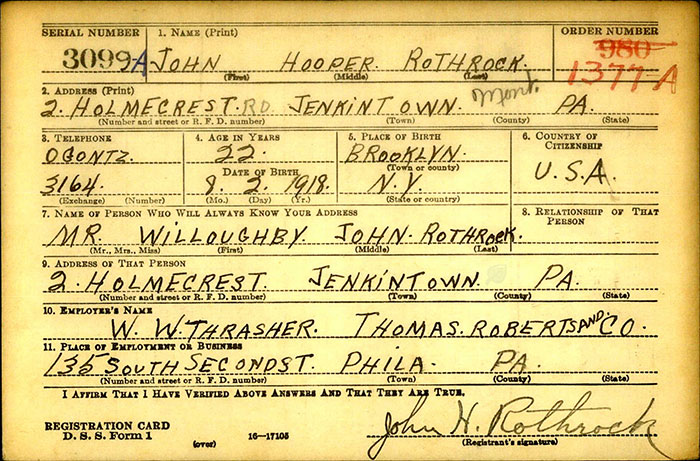 SERIAL NUMBER 1. NAME (Print) ORDER NUMBER
3099A JOHN HOOPER ROTHROCK. 980
(First) (Middle) (Last) 1377-A
2. ADDRESS (Print) Mont.
2. HOLMECREST. RD. JENKINTOWN. PA.
(Number and street or R. F. D. number) (Town) (County) (State)
3. TELEPHONE 4. AGE IN YEARS 5. PLACE OF BIRTH 6. COUNTRY OF CITIZENSHIP
OGONTZ. 22. BROOKLYN. U.S.A.
(Town or county)
DATE OF BIRTH
3164. 8. 2. 1918. N.Y.
(Exchange) (Number) (Mo.) (Day) (Yr.) (State or country)
7. NAME OF PERSON WHO WILL ALWAYS KNOW YOUR ADDRESS 8. RELATIONSHIP OF THAT PERSON
MR. WILLOUGHBY. JOHN. ROTHROCK.
(Mr., Mrs., Miss) (First) (Middle) (Last)
9. ADDRESS OF THAT PERSON
2. HOLMECREST. JENKINTOWN. PA.
(Number and street or R. F. D. number) (Town) (County) (State)
10. EMPLOYER'S NAME
W. W. THRASHER. THOMAS. ROBERTS AND CO.
11. PLACE OF EMPLOYMENT OR BUSINESS
135 SOUTH SECOND ST. PHILA. PA.
(Number and street or R. F. D. number) (Town) (County) (State)
I AFFIRM THAT I HAVE VERIFIED ABOVE ANSWERS AND THAT THEY ARE TRUE.
John H. Rothrock
REGISTRATION CARD
D. S. S. Form 1 (over) 16—17105 (Registrant's signature)